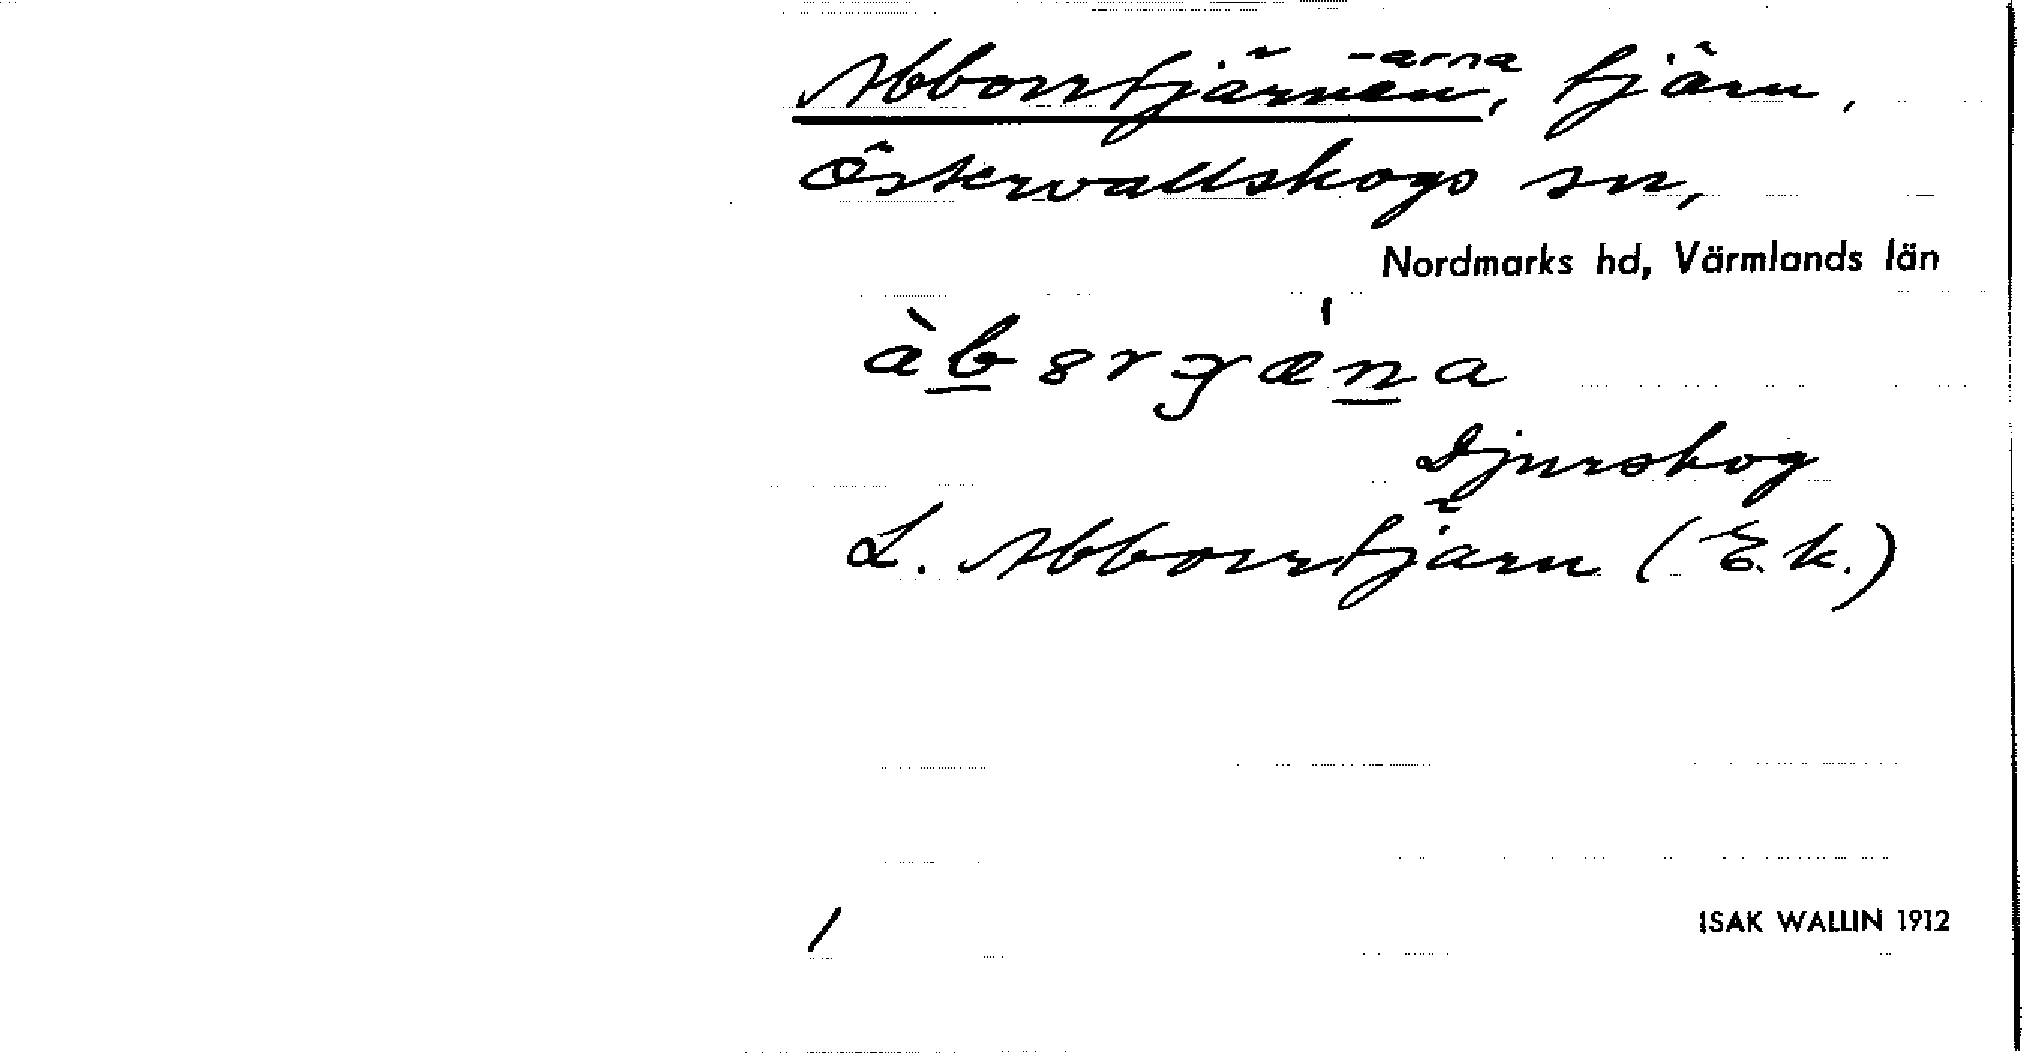 Abborrtjärnen, -arna tjärn,
Östervallskogs sn,
Nordmarks hd, Värmlands län
Djurskog
L. Abborrtjärn (E.k.)
/
ISAK WALLIN 1912